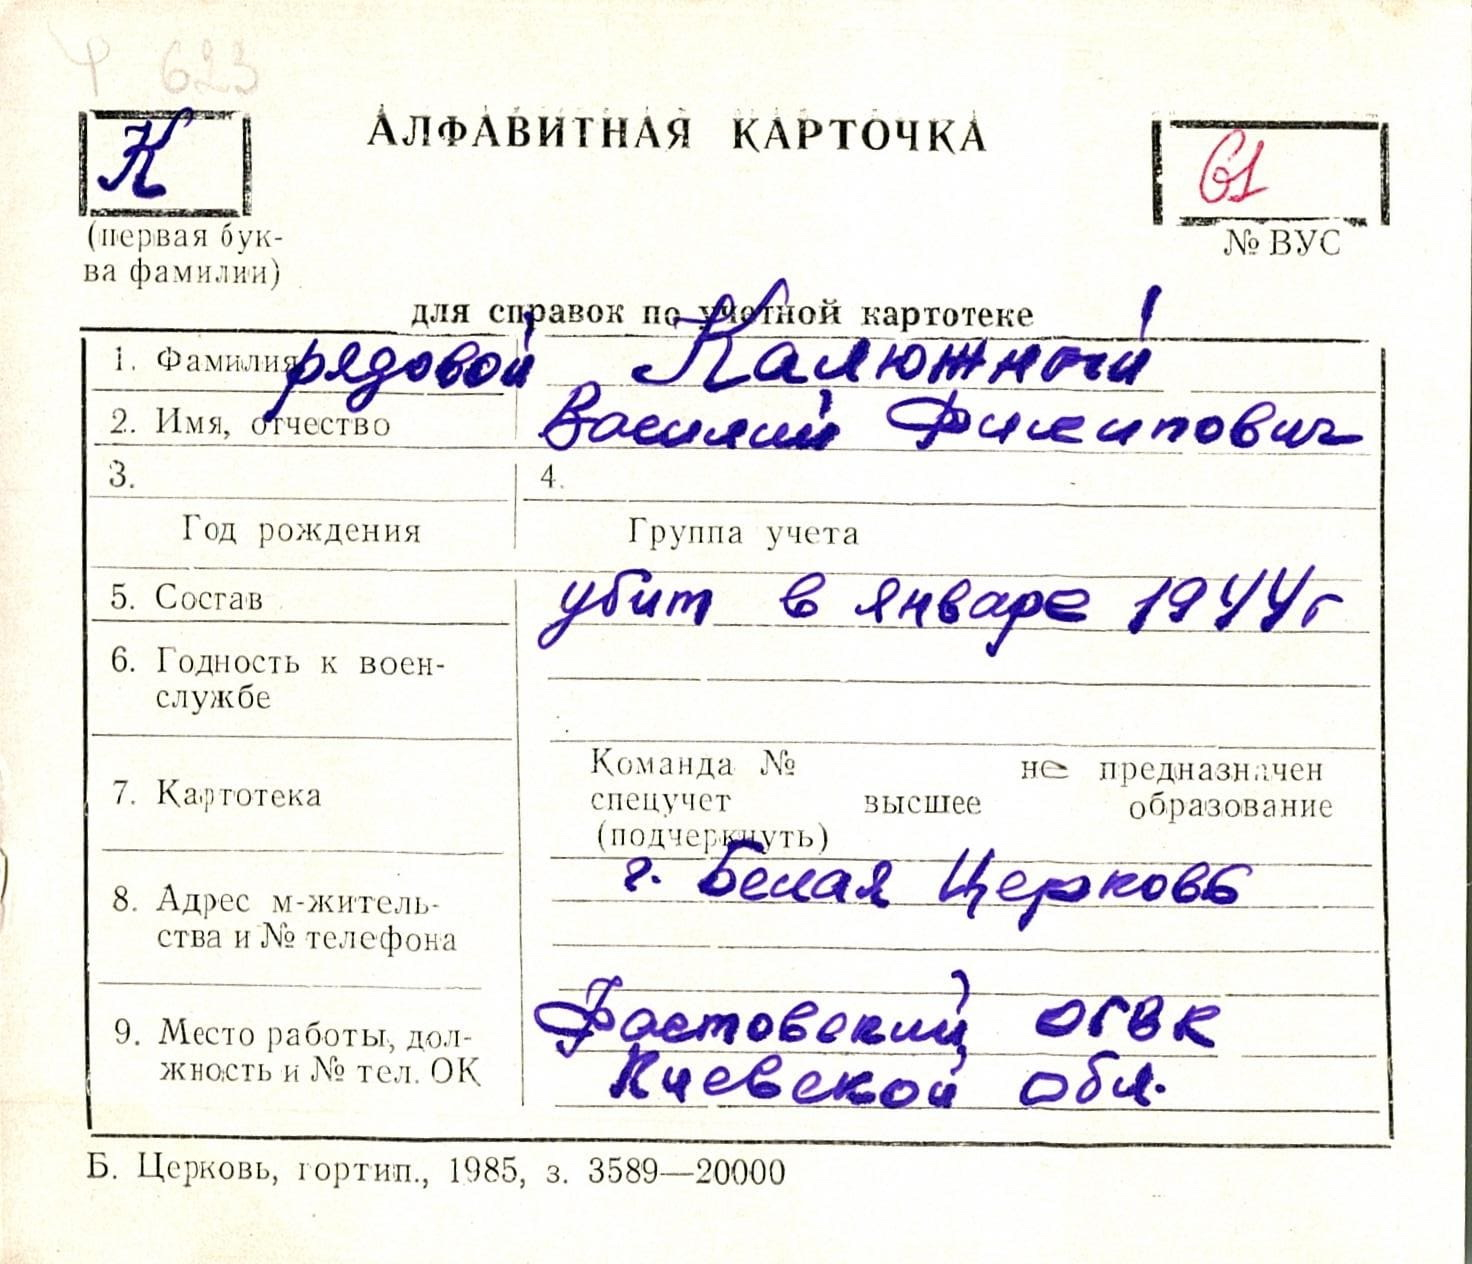 Ф 623
АЛФАВИТНАЯ КАРТОЧКА
К
61
(первая бук-
ва фамилии)
№ ВУС
для справок по учетной картотеке
1. Фамилия рядовой Калюжный
2. Имя, отчество Василий Филипович
3. 4.
Год рождения Группа учета
5. Состав убит в январе 1944г
6. Годность к воен-
службе
Команда № не предназначен
7. Картотека спецучет высшее образование
(подчеркнуть)
г. Белая Церковь
8. Адрес м-житель-
ства и № телефона
9. Место работы, дол- Фастовский ОГВК
жность и № тел. ОК Киевской обл.
Б. Церковь, гортип., 1985, з. 3589—20000